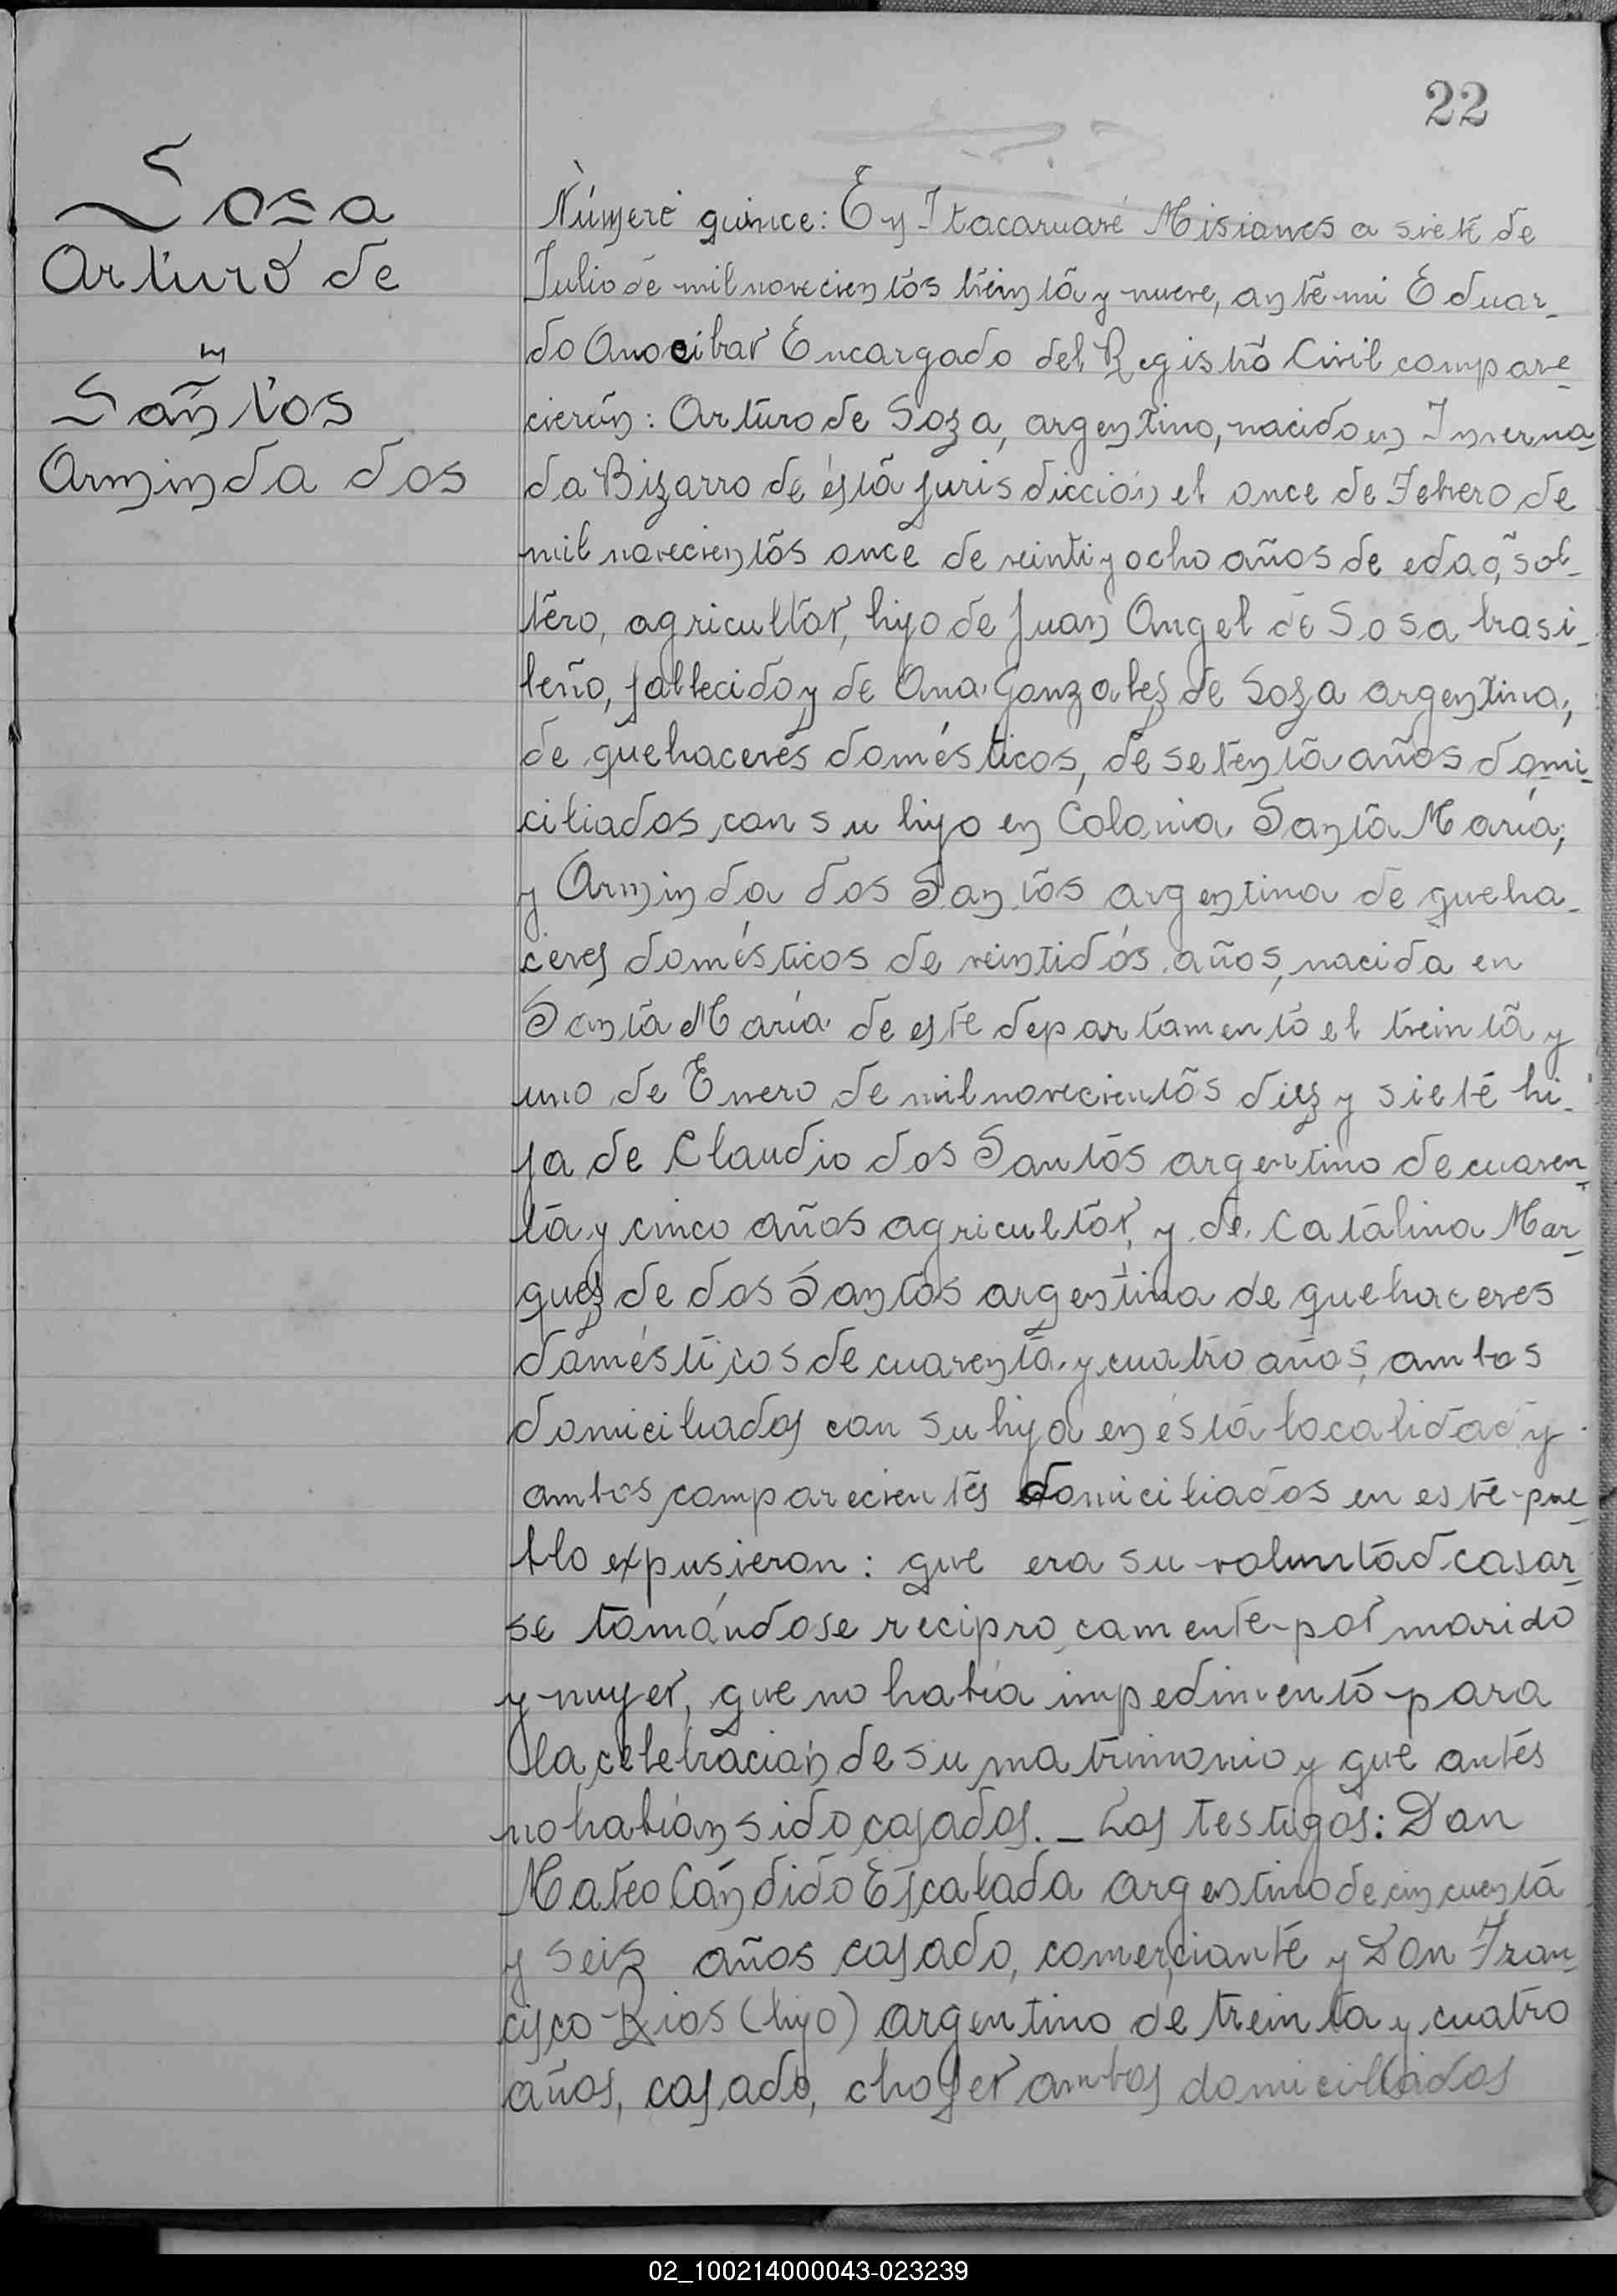 22
Sosa
Arturo de
y
Santos
Arminda dos
Número quince: En Itacaruaré Misiones a siete de
Julio de mil novecientos treinta y nueve, ante mi Eduar-
do Anocibar Encargado del Registro Civil compare-
cieron: Arturo de Soza, argentino, nacido en Inverna-
da Bizarro de ésta jurisdicción el once de Febrero de
mil novecientos once de veinti y ocho años de edad, sol-
tero, agricultor, hijo de Juan Angel de Sosa brasi-
leño, fallecido y de Ana Gonzalez de Soza argentina,
de quehaceres domésticos, de setenta años domi-
ciliados con su hijo en Colonia Santa María;
y Arminda dos Santos argentina de queha-
ceres domésticos de veintidós años, nacida en
Santa María de este departamento el treinta y
uno de Enero de mil novecientos diez y siete hi-
ja de Claudio dos Santos argentino de cuaren-
ta y cinco años agricultor, y de Catalina Mar-
quez de dos Santos argentina de quehaceres
domésticos de cuarenta y cuatro años, ambos
domiciliados con su hija en ésta localidad y
ambos comparecientes domiciliados en este pue-
blo expusieron: que era su voluntad casar-
se tomándose reciprocamente por marido
y mujer, que no había impedimento para
la celebración de su matrimonio y que antes
no habían sido casados._ Los testigos: Don
Mateo Cándido Escalada argentino de cincuenta
y seis años casado, comerciante y Don Fran-
cisco Rios (hijo) argentino de treinta y cuatro
años, casado, chofer ambos domiciliados
02_100214000043-023239